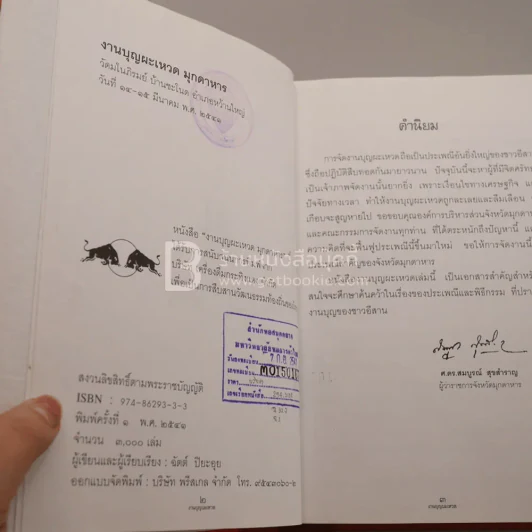 งานบุญผะเหวด มุกดาหาร
วัดมโนภิรมย์ บ้านชะโนด อำเภอหว้านใหญ่
วันที่ ๑๔-๑๕ มีนาคม พ.ศ. ๒๕๔๑
หนังสือ "งานบุญผะเหวด มุกดาหาร
ได้รับการสนับสนุนการจัดพิมพ์จาก
บริษัท เครื่องดื่มกระทิงแดง
เพื่อเป็นการสืบสานวัฒนธรรมท้องถิ่น
สำนักหอสมุดกลาง
M0150167
สงวนลิขสิทธิ์ตามพระราชบัญญัติ
ISBN : 974-86293-3-3
พิมพ์ครั้งที่ ๑ พ.ศ. ๒๕๔๑
จำนวน ๓,๐๐๐ เล่ม
ผู้เขียนและผู้เรียบเรียง : ฉัตต์ ปิยะอุย
ออกแบบจัดพิมพ์ : บริษัท พรีสเกล จำกัด โทร. ๙๕๔๓๐๖๐-๒
๒
งานบุญผะเหวด
คำนิยม
การจัดงานบุญผะเหวดถือเป็นประเพณีอันยิ่งใหญ่ของชาวอีสาน
ซึ่งถือปฏิบัติสืบทอดกันมายาวนาน ปัจจุบันนี้จะหาผู้ที่มีจิตศรัทธา
เป็นเจ้าภาพจัดงานนั้นยากยิ่ง เพราะเงื่อนไขทางเศรษฐกิจ
ปัจจัยทางเวลา ทำให้งานบุญผะเหวดถูกละเลยและลืมเลือน
เกือบจะสูญหายไป ขอขอบคุณองค์การบริหารส่วนจังหวัดมุกดาหาร
และคณะกรรมการจัดงานทุกท่าน ที่ได้ตระหนักถึงปัญหานี้
ความคิดที่จะฟื้นฟูประเพณีนี้ขึ้นมาใหม่ ขอให้การจัดงานนี้
สำคัญของจังหวัดมุกดาหาร
หนังสืองานบุญผะเหวดเล่มนี้ เป็นเอกสารสำคัญสำหรับ
สนใจจะศึกษาค้นคว้าในเรื่องของประเพณีและพิธีกรรม
งานบุญของชาวอีสาน
ศ.ดร.สมบูรณ์ สุขสำราญ
ผู้ว่าราชการจังหวัดมุกดาหาร
๓
งานบุญผะเหวด
ขายหนังสือบุ๊คกี้
www.getbookie.com